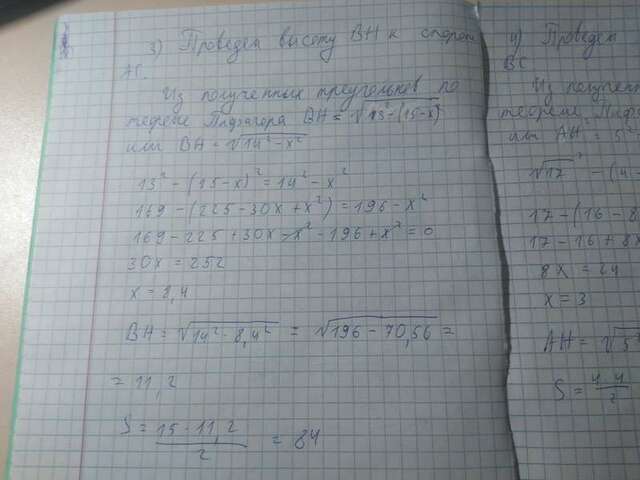 3) Проведем высоту BH к стороне
AC.
Из полученных треугольников по
теореме Пифагора BH = √13² - (15-x)²
или BH = √14² - x²
13² - (15-x)² = 14² - x²
169 - (225 - 30x + x²) = 196 - x²
169 - 225 + 30x - x² - 196 + x² = 0
30x = 252
x = 8,4
BH = √14² - 8,4² = √196 - 70,56 =
= 11,2
S = 15 · 11,2 / 2 = 84
4) Проведем
BC
Из получен
теореме Пиф
или AH = 5²
√17² - (4 -
17 - (16 - 8
17 - 16 + 8x
8x = 24
x = 3
AH = √5²
S = 4·4 / 2